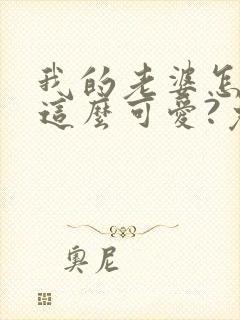 我的老婆怎
這麼可愛?
奧尼